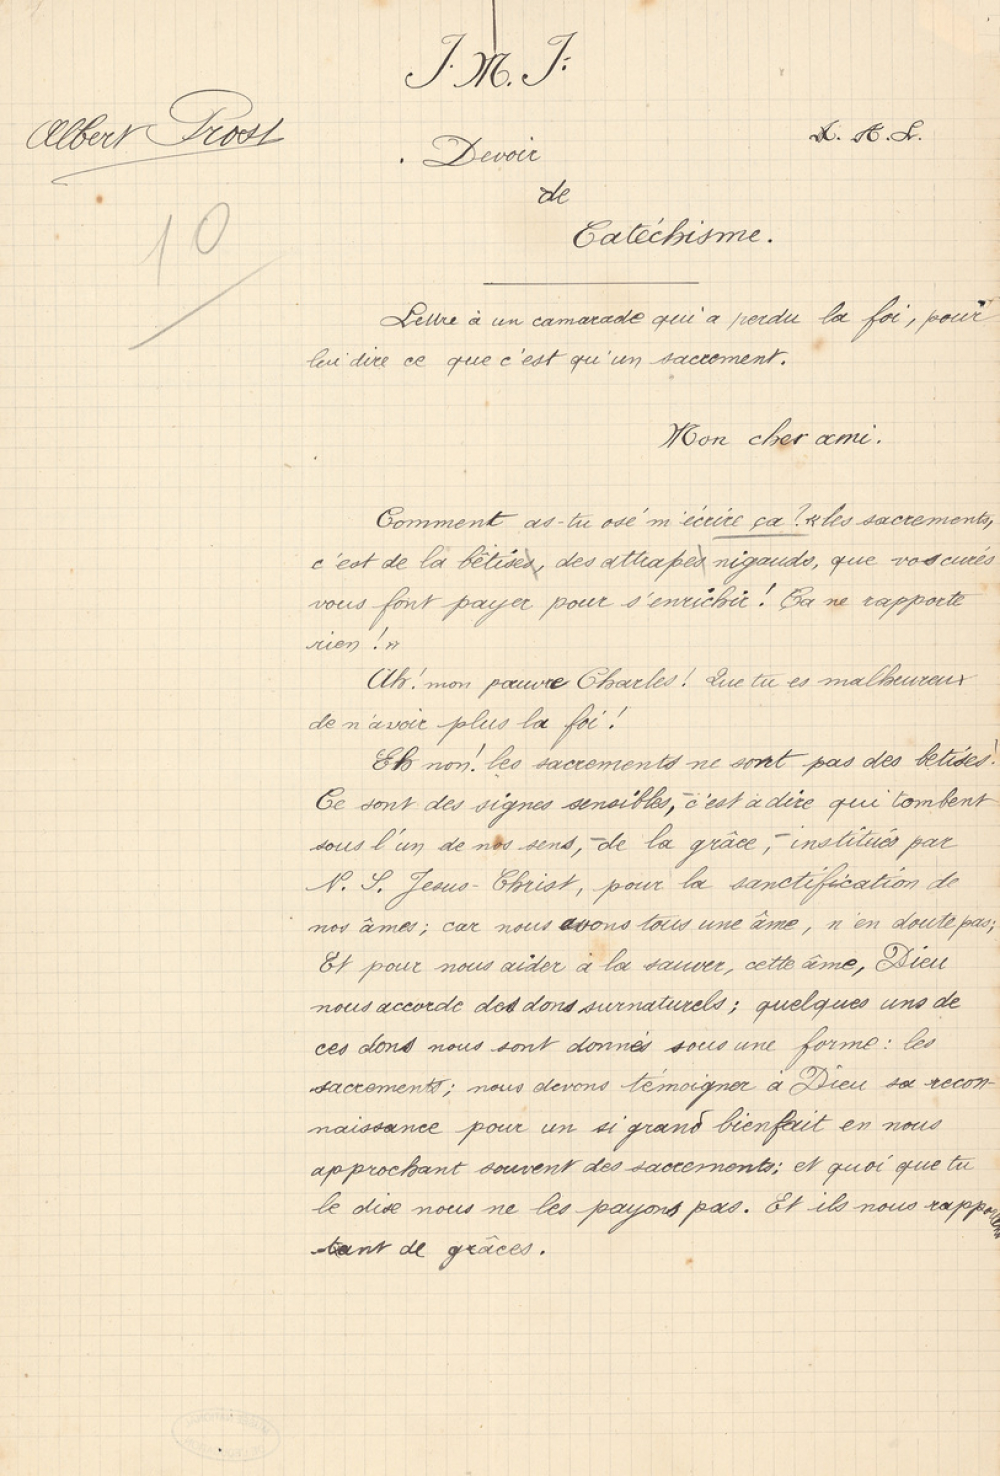 J. M. J.
Albert Prost
D. A. L.
Devoir
de
Catéchisme.
10
Lettre à un camarade qui a perdu la foi, pour
lui dire ce que c'est qu'un sacrement.
Mon cher ami.
Comment as-tu osé m'écrire ça ? « les sacrements,
c'est de la bêtises, des attrapes nigauds, que vos curés
vous font payer pour s'enrichir ! Ça ne rapporte
rien ! »
Ah ! mon pauvre Charles ! Que tu es malheureux
de n'avoir plus la foi !
Eh non ! les sacrements ne sont pas des bêtises !
Ce sont des signes sensibles, – c'est à dire qui tombent
sous l'un de nos sens, – de la grâce, – institués par
N. S. Jesus-Christ, pour la sanctification de
nos âmes ; car nous avons tous une âme, n'en doute pas ;
Et pour nous aider à la sauver, cette âme, Dieu
nous accorde des dons surnaturels ; quelques uns de
ces dons nous sont donnés sous une forme : les
sacrements ; nous devons témoigner à Dieu sa recon-
naissance pour un si grand bienfait en nous
approchant souvent des sacrements ; et quoi que tu
le dise nous ne les payons pas. Et ils nous rapportent
tant de grâces.